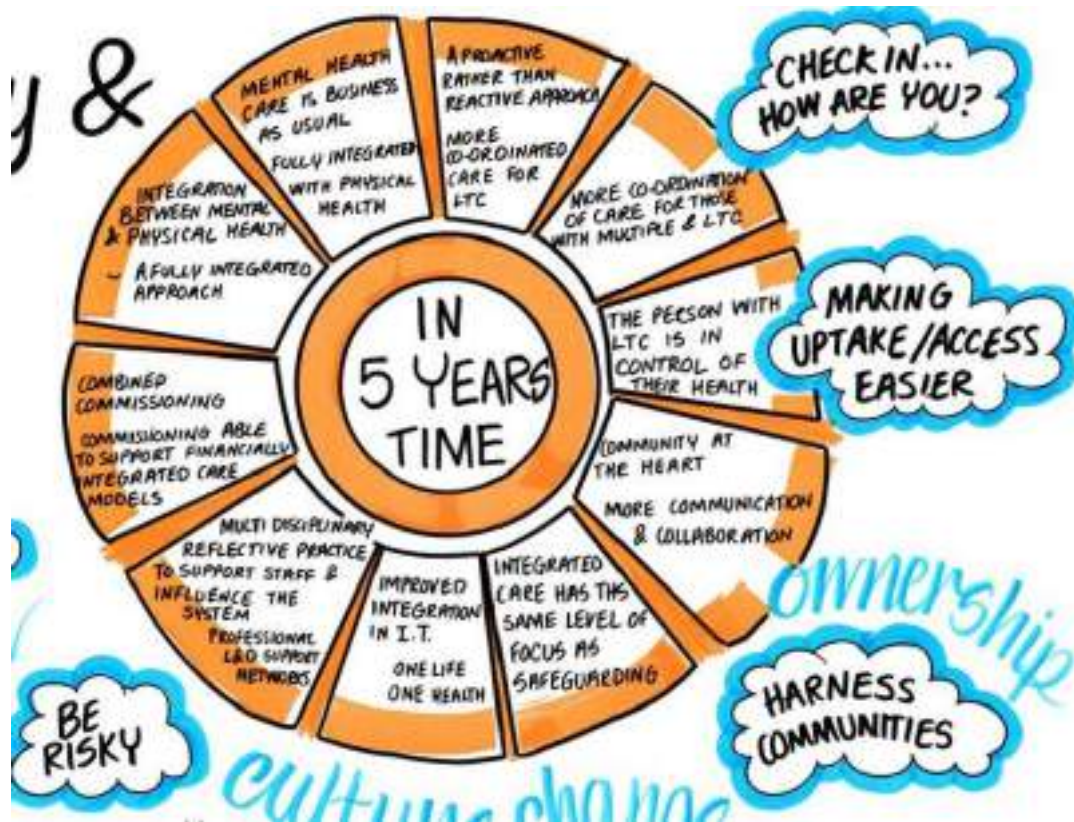 y &
MENTAL HEALTH
CARE IS BUSINESS
AS USUAL
FULLY INTEGRATED
WITH PHYSICAL
HEALTH
A PROACTIVE
RATHER THAN
REACTIVE APPROACH
MORE
CO-ORDINATED
CARE FOR
LTC
MORE CO-ORDINATION
OF CARE FOR THOSE
WITH MULTIPLE & LTC
THE PERSON WITH
LTC IS IN
CONTROL OF
THEIR HEALTH
COMMUNITY AT
THE HEART
MORE COMMUNICATION
& COLLABORATION
INTEGRATED
CARE HAS THS
SAME LEVEL OF
FOCUS AS
SAFEGUARDING
IMPROVED
INTEGRATION
IN I.T.
ONE LIFE
ONE HEALTH
MULTI DISCIPLINARY
REFLECTIVE PRACTICE
TO SUPPORT STAFF &
INFLUENCE THE
SYSTEM
PROFESSIONAL
L&D SUPPORT
NETWORKS
COMBINED
COMMISSIONING
COMMISIONING ABLE
TO SUPPORT FINANCIALLY
INTEGRATED CARE
MODELS
INTEGRATION
BETWEEN MENTAL
& PHYSICAL HEALTH
A FULLY INTEGRATED
APPROACH
IN
5 YEARS
TIME
CHECK IN...
HOW ARE YOU?
MAKING
UPTAKE/ACCESS
EASIER
ownership
HARNESS
COMMUNITIES
BE
RISKY
culture change